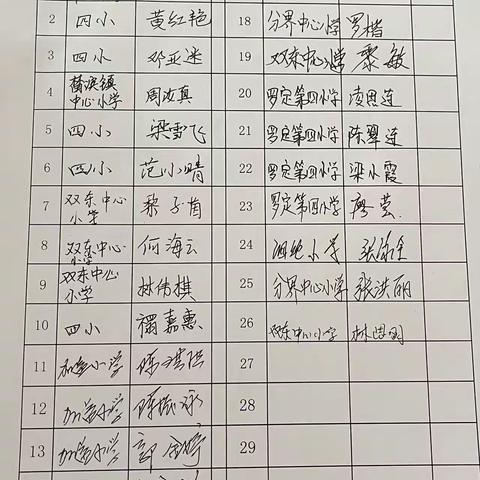 2 四小 黄红艳 18 分界中心小学 罗楷
3 四小 邓亚迷 19 双东中心小学 黎敏
4 蓢滨镇 周汝真 20 罗定第四小学 凌思连
中心小学
5 四小 梁雪飞 21 罗定第四小学 陈翠连
6 四小 范小晴 22 罗定第四小学 梁小霞
7 双东中心 黎子茵 23 罗定第四小学 廖莹
小学
8 双东中心 何海云 24 小学
小学
9 双东中心 林伟棋 25 分界中心小学 张洪丽
小学
10 四小 禤嘉惠 26 双东中心小学
11 加益小学 27
12 加益小学 28
13 加益小学 29